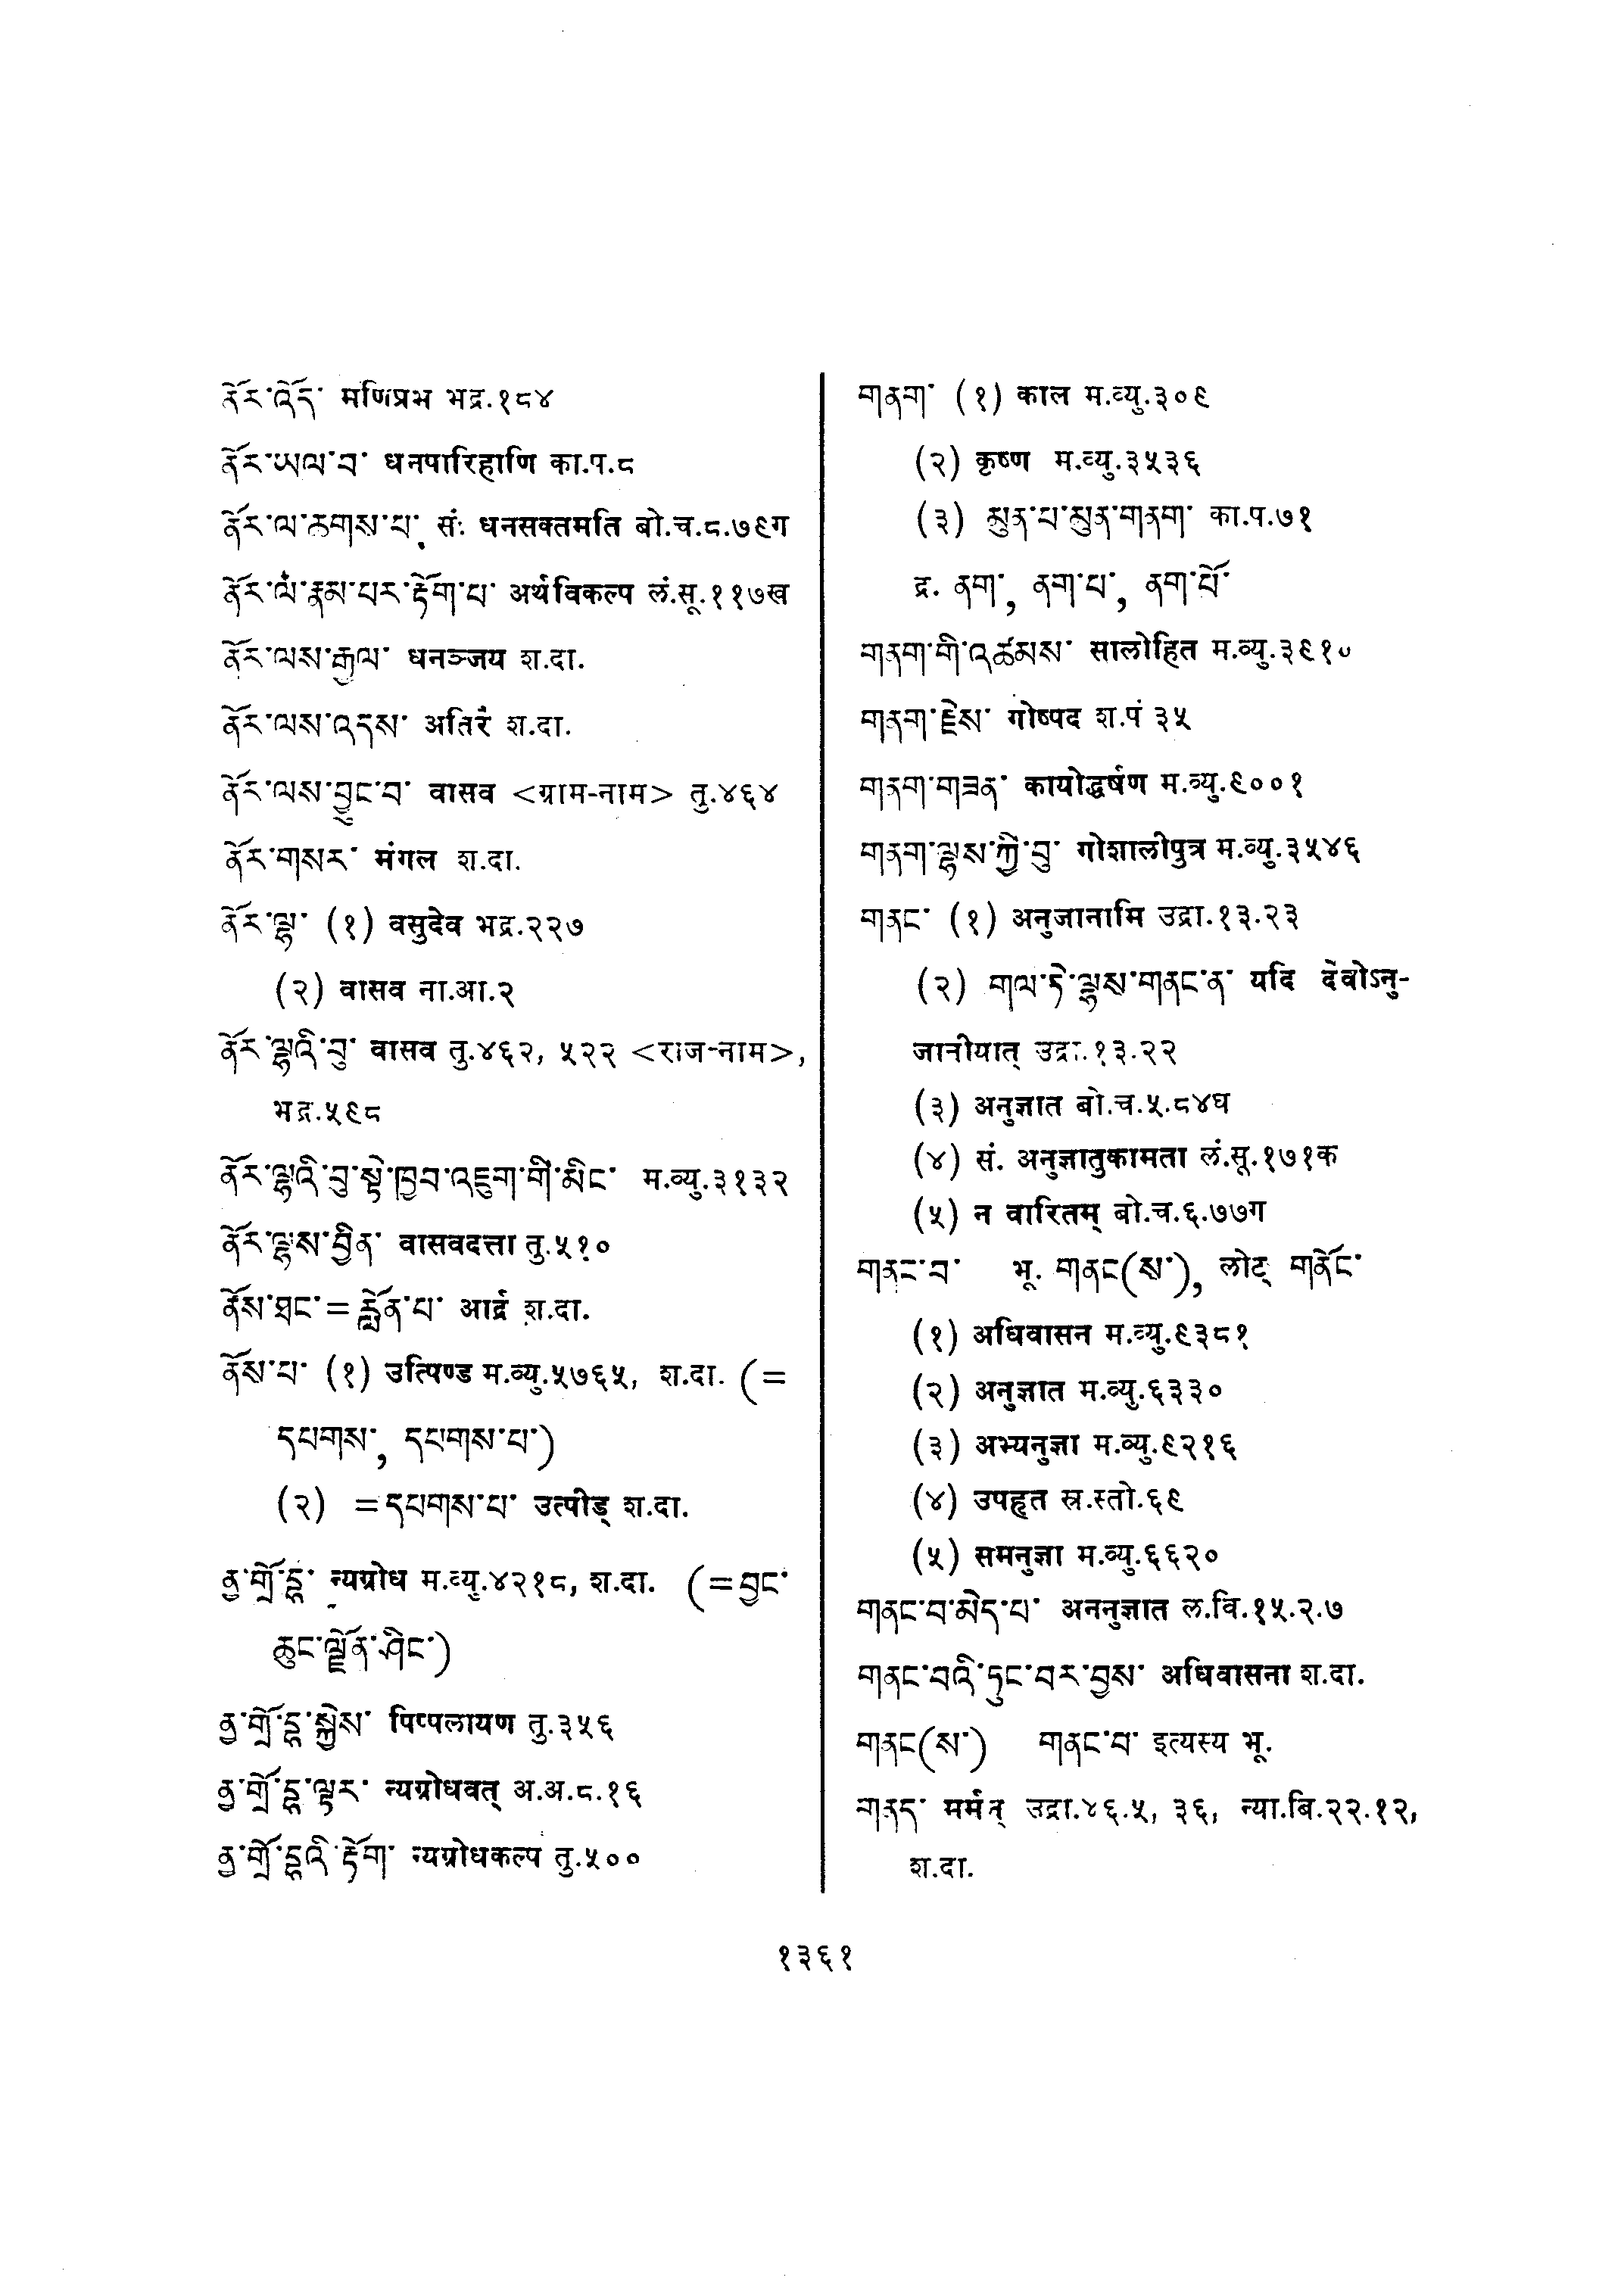 ནོར་འོད་ मणिप्रभ भद्र.१८४
ནོར་ཡལ་བ་ धनपारिहाणि का.प.८
ནོར་ལ་ཆགས་པ་ सं. धनसक्तमति बो.च.८.७९ग
ནོར་ལ་རྣམ་པར་རྟོག་པ་ अर्थविकल्प लं.सू.११७ख
ནོར་ལས་རྒྱལ་ धनञ्जय श.दा.
ནོར་ལས་འདས་ अतिरं श.दा.
ནོར་ལས་བྱུང་བ་ वासव <ग्राम-नाम> तु.४६४
ནོར་གསར་ मंगल श.दा.
ནོར་ལྷ་ (१) वसुदेव भद्र.२२७
(२) वासव ना.आ.२
ནོར་ལྷའི་བུ་ वासव तु.४६२, ५२२ <राज-नाम>,
भद्र.५९८
ནོར་ལྷའི་བུ་སྟེ་ཁྱབ་འཇུག་གི་མིང་ म.व्यु.३१३२
ནོར་ལྷས་བྱིན་ वासवदत्ता तु.५१०
ནོས་ཐང་ = རློན་པ་ आर्द्र श.दा.
ནོས་པ་ (१) उत्पिण्ड म.व्यु.५७६५, श.दा. (=
དཔགས་, དཔགས་པ་)
(२) = དཔགས་པ་ उत्पीड् श.दा.
ནྱ་གྲོ་དྷ་ न्यग्रोध म.व्यु.४२१८, श.दा. (= བྱང་
ཆུང་ལྗོན་ཤིང་)
ནྱ་གྲོ་དྷ་སྐྱེས་ पिप्पलायण तु.३५६
ནྱ་གྲོ་དྷ་ལྟར་ न्यग्रोधवत् अ.अ.८.१६
ནྱ་གྲོ་དྷའི་རྟོག་ न्यग्रोधकल्प तु.५००
གནག་ (१) काल म.व्यु.३०९
(२) कृष्ण म.व्यु.३५३६
(३) མུན་པ་མུན་གནག་ का.प.७१
द्र. ནག་, ནག་པ་, ནག་པོ་
གནག་གི་འཚམས་ सालोहित म.व्यु.३९१०
གནག་རྗེས་ गोष्पद श.पं ३५
གནག་གཟན་ कायोद्घर्षण म.व्यु.९००१
གནག་ལྷས་ཀྱི་བུ་ गोशालीपुत्र म.व्यु.३५४६
གནང་ (१) अनुजानामि उद्रा.१३.२३
(२) གལ་ཏེ་ལྷས་གནང་ན་ यदि देवोऽनु-
जानीयात् उद्रा.१३.२२
(३) अनुज्ञात बो.च.५.८४घ
(४) सं. अनुज्ञातुकामता लं.सू.१७१क
(५) न वारितम् बो.च.६.७७ग
གནང་བ་ भू. གནང(ས་), लोट् གནོང་
(१) अधिवासन म.व्यु.९३८१
(२) अनुज्ञात म.व्यु.६३३०
(३) अभ्यनुज्ञा म.व्यु.९२१६
(४) उपहृत स्र.स्तो.६९
(५) समनुज्ञा म.व्यु.६६२०
གནང་བ་མེད་པ་ अननुज्ञात ल.वि.१५.२.७
གནང་བའི་དུང་བར་བྱས་ अधिवासना श.दा.
གནང(ས་) གནང་བ་ इत्यस्य भू.
གནད་ मर्मन् उद्रा.४६.५, ३६, न्या.बि.२२.१२,
श.दा.
१३६१